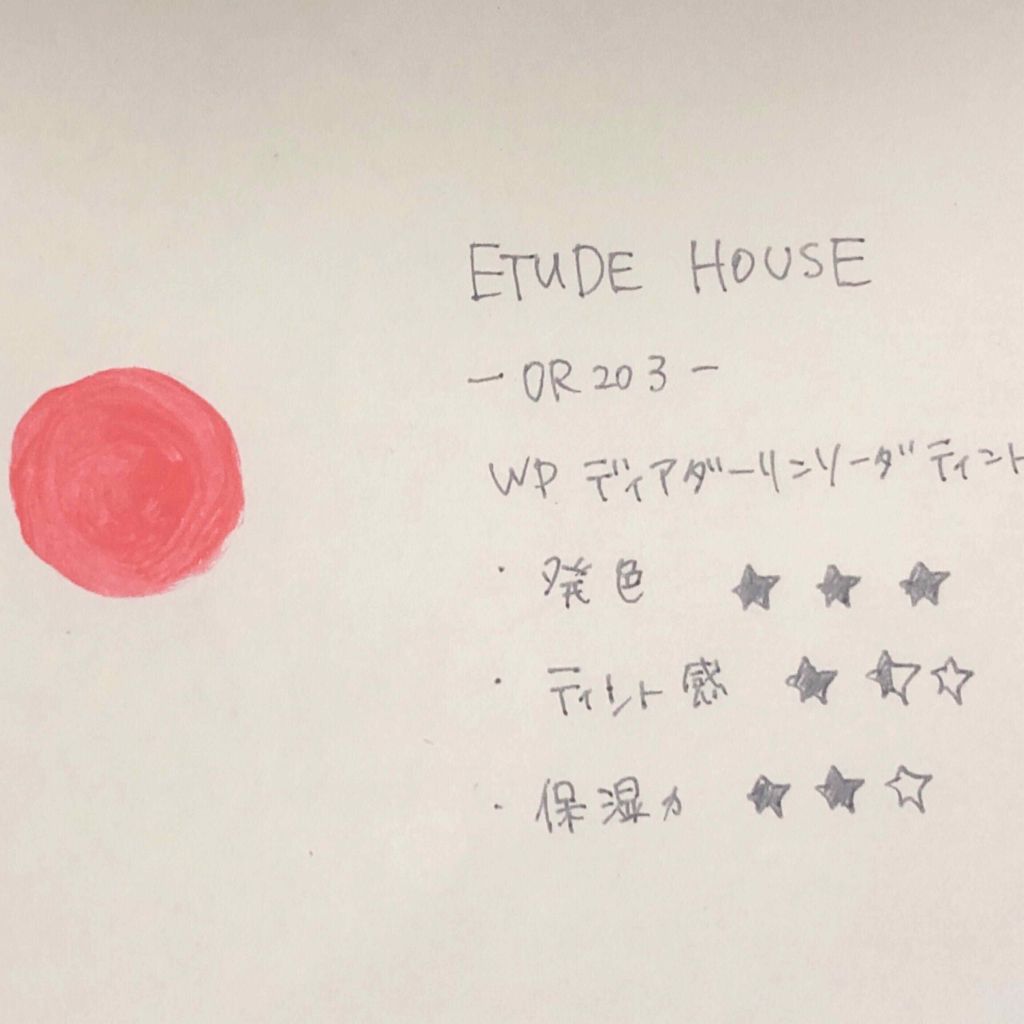 ETUDE HOUSE
- OR203 -
WP ディアダーリンソーダティント
・発色 ★★★
・ティント感 ★⯪☆
・保湿力 ★★☆